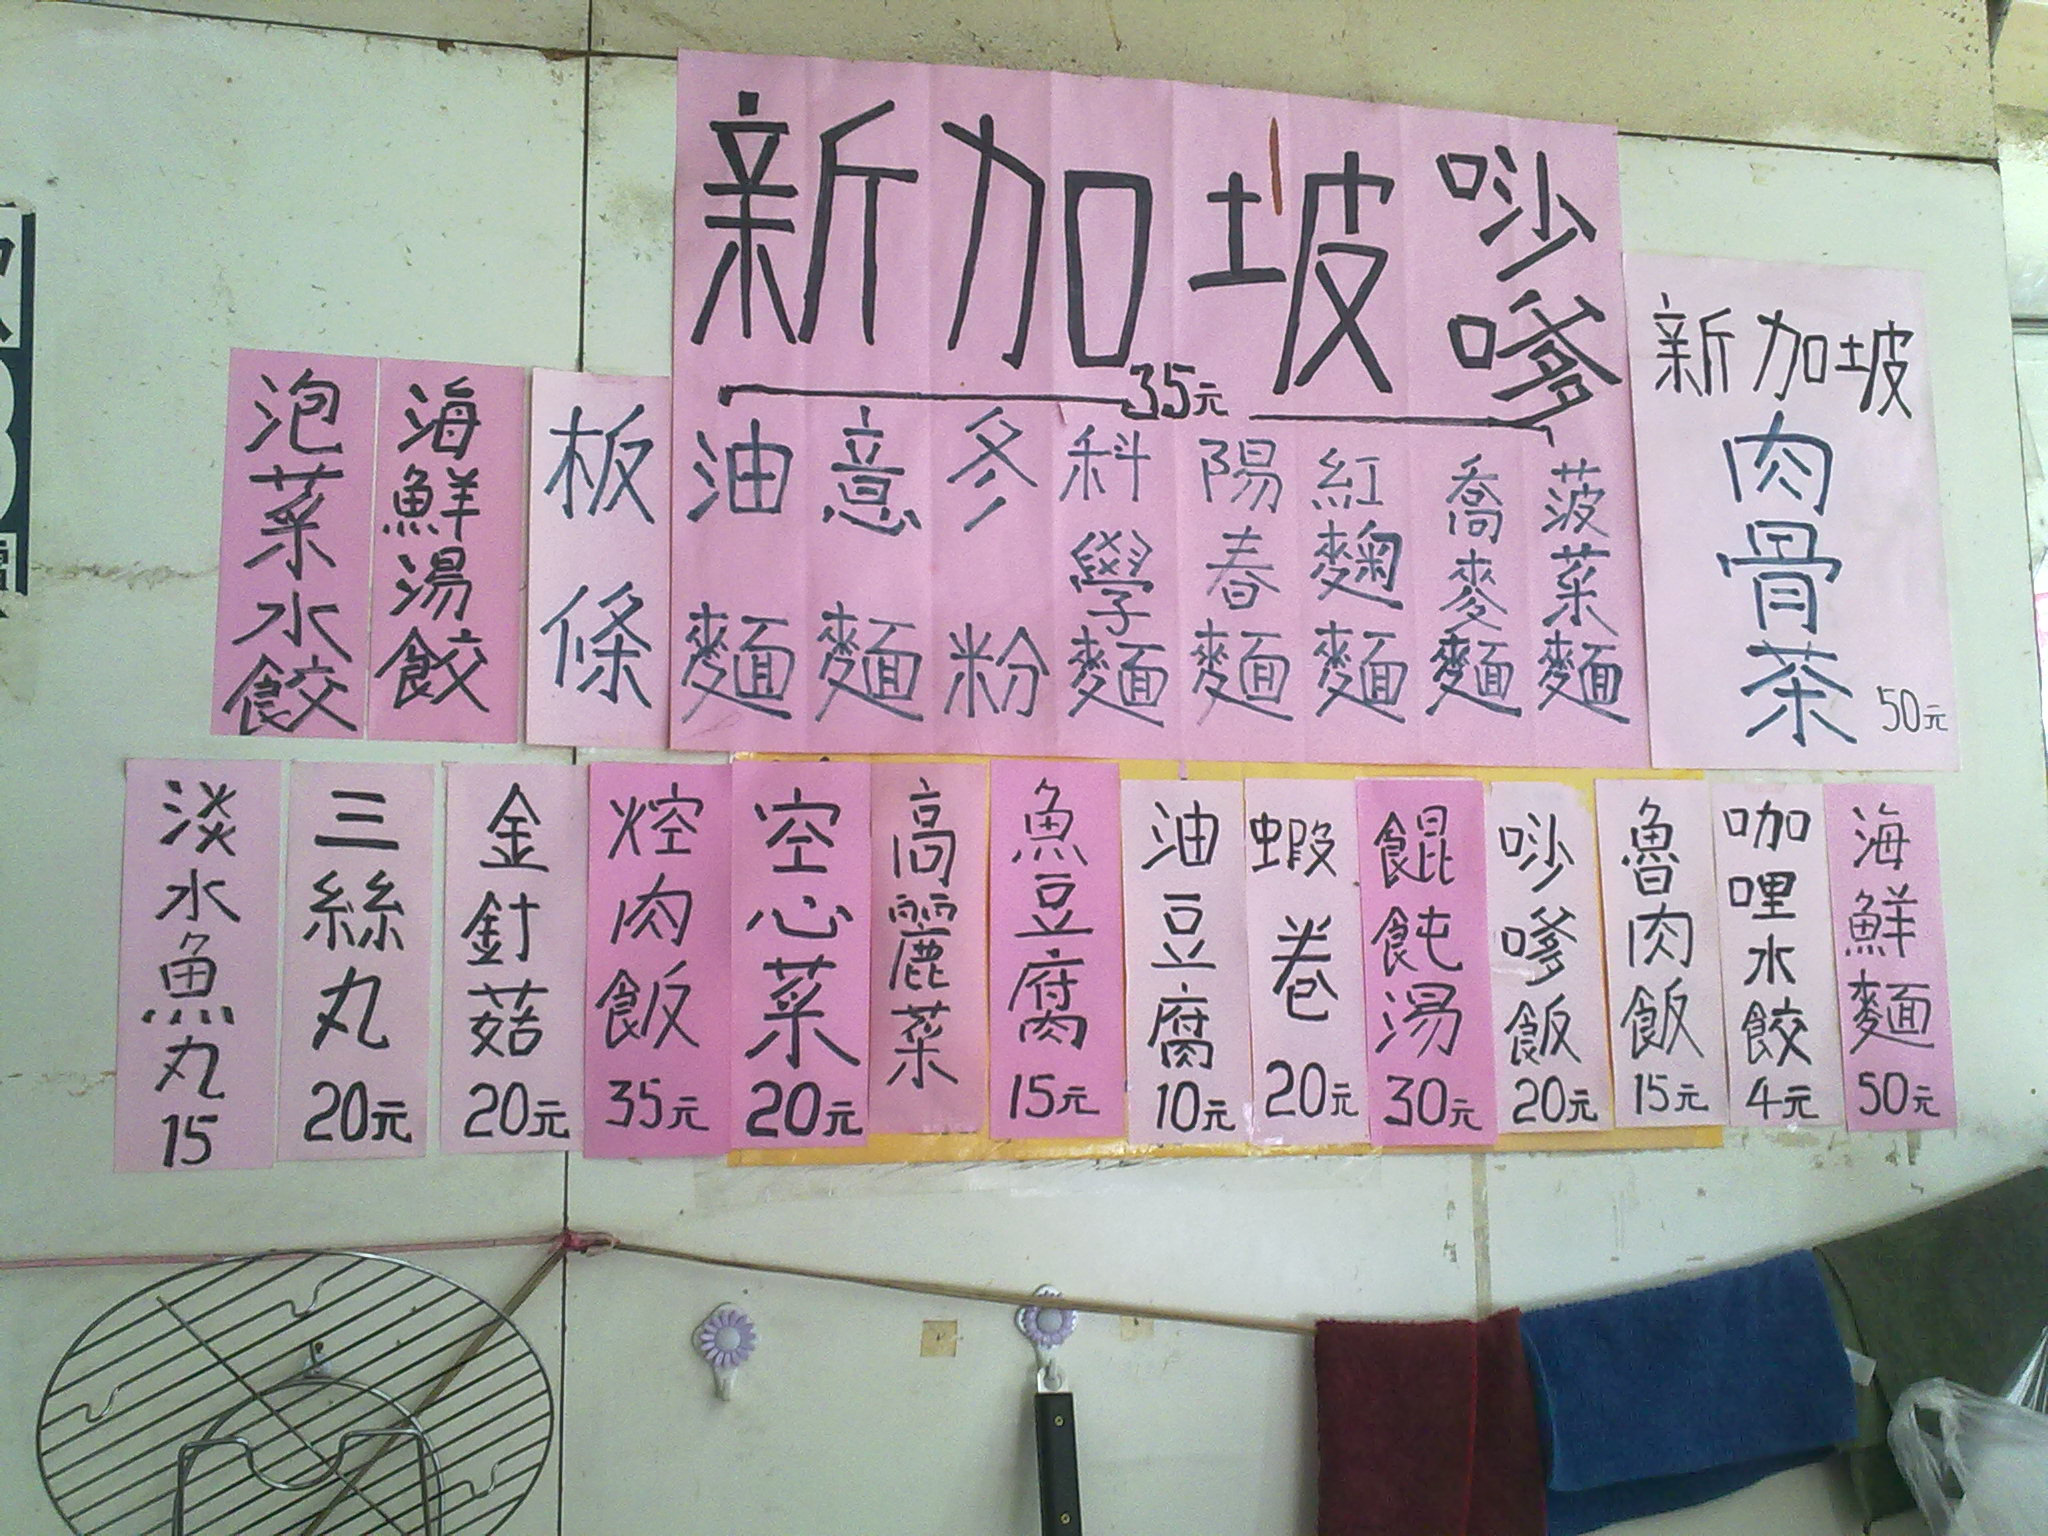 新加坡 唦嗲
35元
泡菜水餃
海鮮湯餃
板條
油麵
意麵
冬粉
科學麵
陽春麵
紅麴麵
喬麥麵
菠菜麵
新加坡
肉骨茶
50元
淡水魚丸 15
三絲丸 20元
金針菇 20元
焢肉飯 35元
空心菜 20元
高麗菜
魚豆腐 15元
油豆腐 10元
蝦卷 20元
餛飩湯 30元
唦嗲飯 20元
魯肉飯 15元
咖哩水餃 4元
海鮮麵 50元